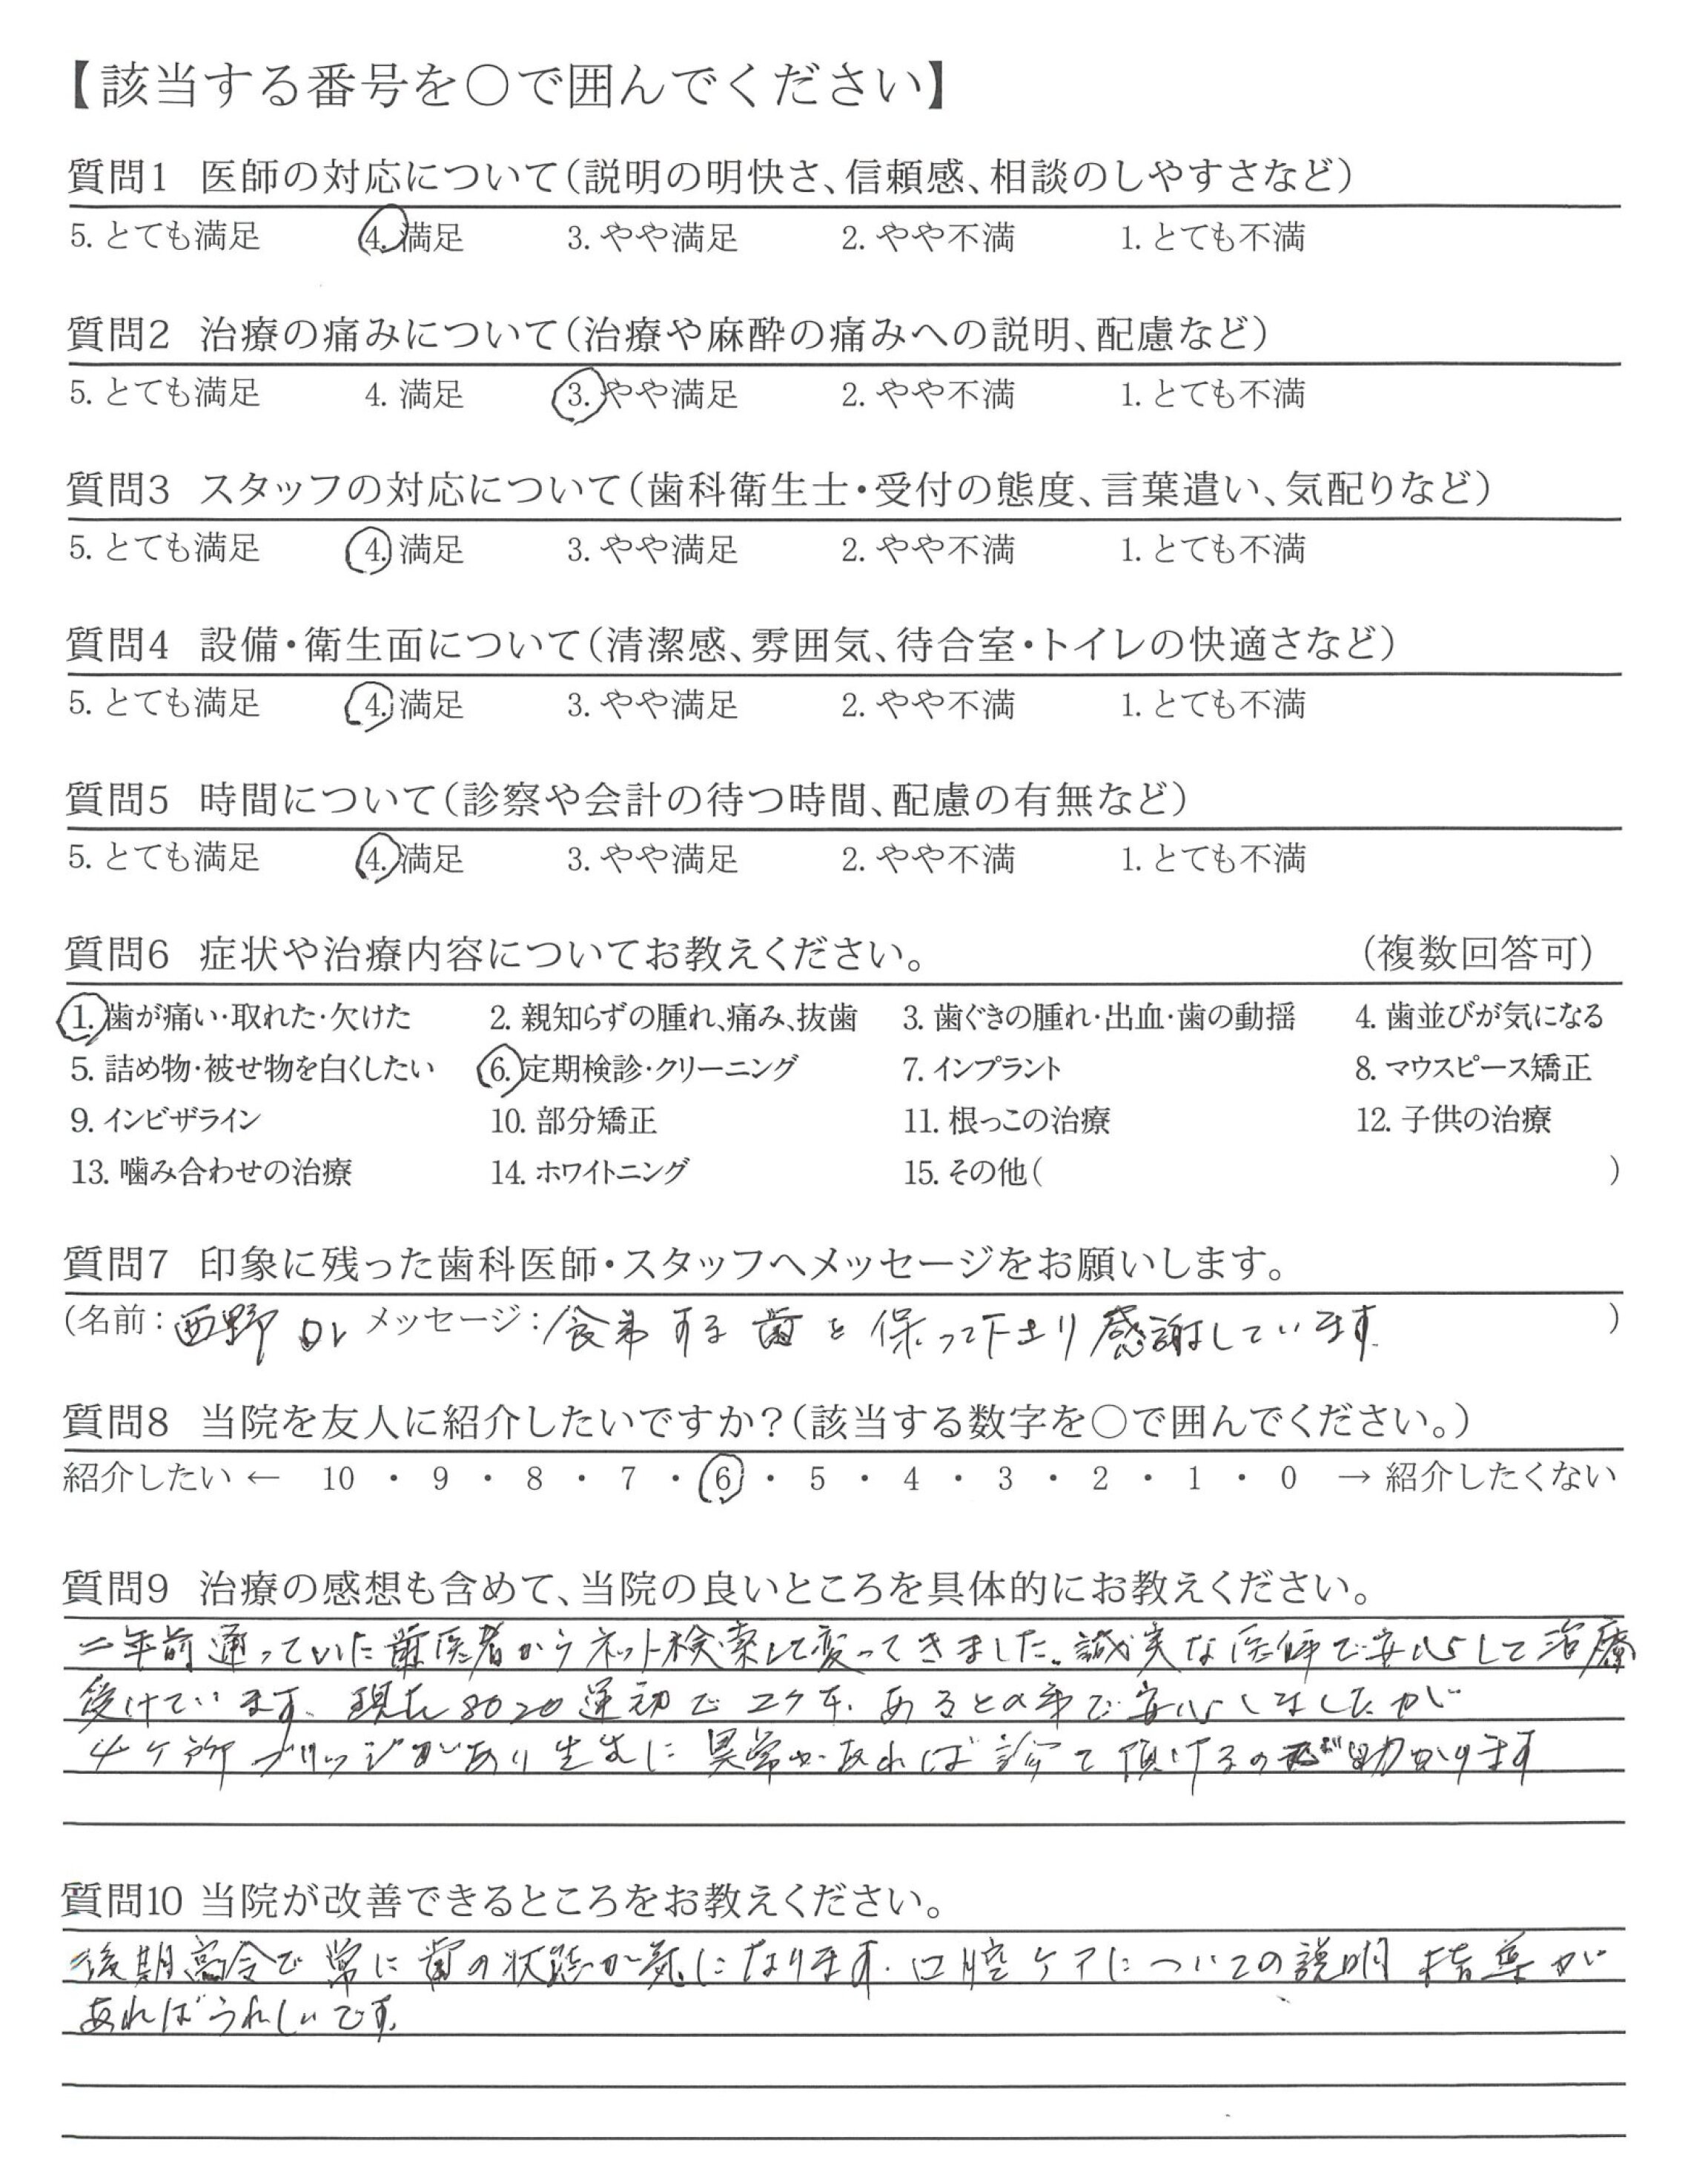 【該当する番号を○で囲んでください】
質問1 医師の対応について(説明の明快さ、信頼感、相談のしやすさなど)
5. とても満足 4. 満足 3. やや満足 2. やや不満 1. とても不満
質問2 治療の痛みについて(治療や麻酔の痛みへの説明、配慮など)
5. とても満足 4. 満足 3. やや満足 2. やや不満 1. とても不満
質問3 スタッフの対応について(歯科衛生士・受付の態度、言葉遣い、気配りなど)
5. とても満足 4. 満足 3. やや満足 2. やや不満 1. とても不満
質問4 設備・衛生面について(清潔感、雰囲気、待合室・トイレの快適さなど)
5. とても満足 4. 満足 3. やや満足 2. やや不満 1. とても不満
質問5 時間について(診察や会計の待つ時間、配慮の有無など)
5. とても満足 4. 満足 3. やや満足 2. やや不満 1. とても不満
質問6 症状や治療内容についてお教えください。 (複数回答可)
1. 歯が痛い・取れた・欠けた 2. 親知らずの腫れ、痛み、抜歯 3. 歯ぐきの腫れ・出血・歯の動揺 4. 歯並びが気になる
5. 詰め物・被せ物を白くしたい 6. 定期検診・クリーニング 7. インプラント 8. マウスピース矯正
9. インビザライン 10. 部分矯正 11. 根っこの治療 12. 子供の治療
13. 噛み合わせの治療 14. ホワイトニング 15. その他( )
質問7 印象に残った歯科医師・スタッフへメッセージをお願いします。
(名前: 西野 Dr メッセージ: 食事する歯を保って下さり感謝しています )
質問8 当院を友人に紹介したいですか?(該当する数字を○で囲んでください。)
紹介したい ← 10 ・ 9 ・ 8 ・ 7 ・ 6 ・ 5 ・ 4 ・ 3 ・ 2 ・ 1 ・ 0 → 紹介したくない
質問9 治療の感想も含めて、当院の良いところを具体的にお教えください。
二年前通っていた歯医者からネット検索して変ってきました。誠実な医師で安心して治療
受けています。現在8020運動で あるとの事で安心しましたが
4ヶ所ブリッジがあり 異常があれば診て頂けるのが助かります
質問10 当院が改善できるところをお教えください。
後期高令で常に歯の状態が気になります。口腔ケアについての説明 指導が
あればうれしいです。